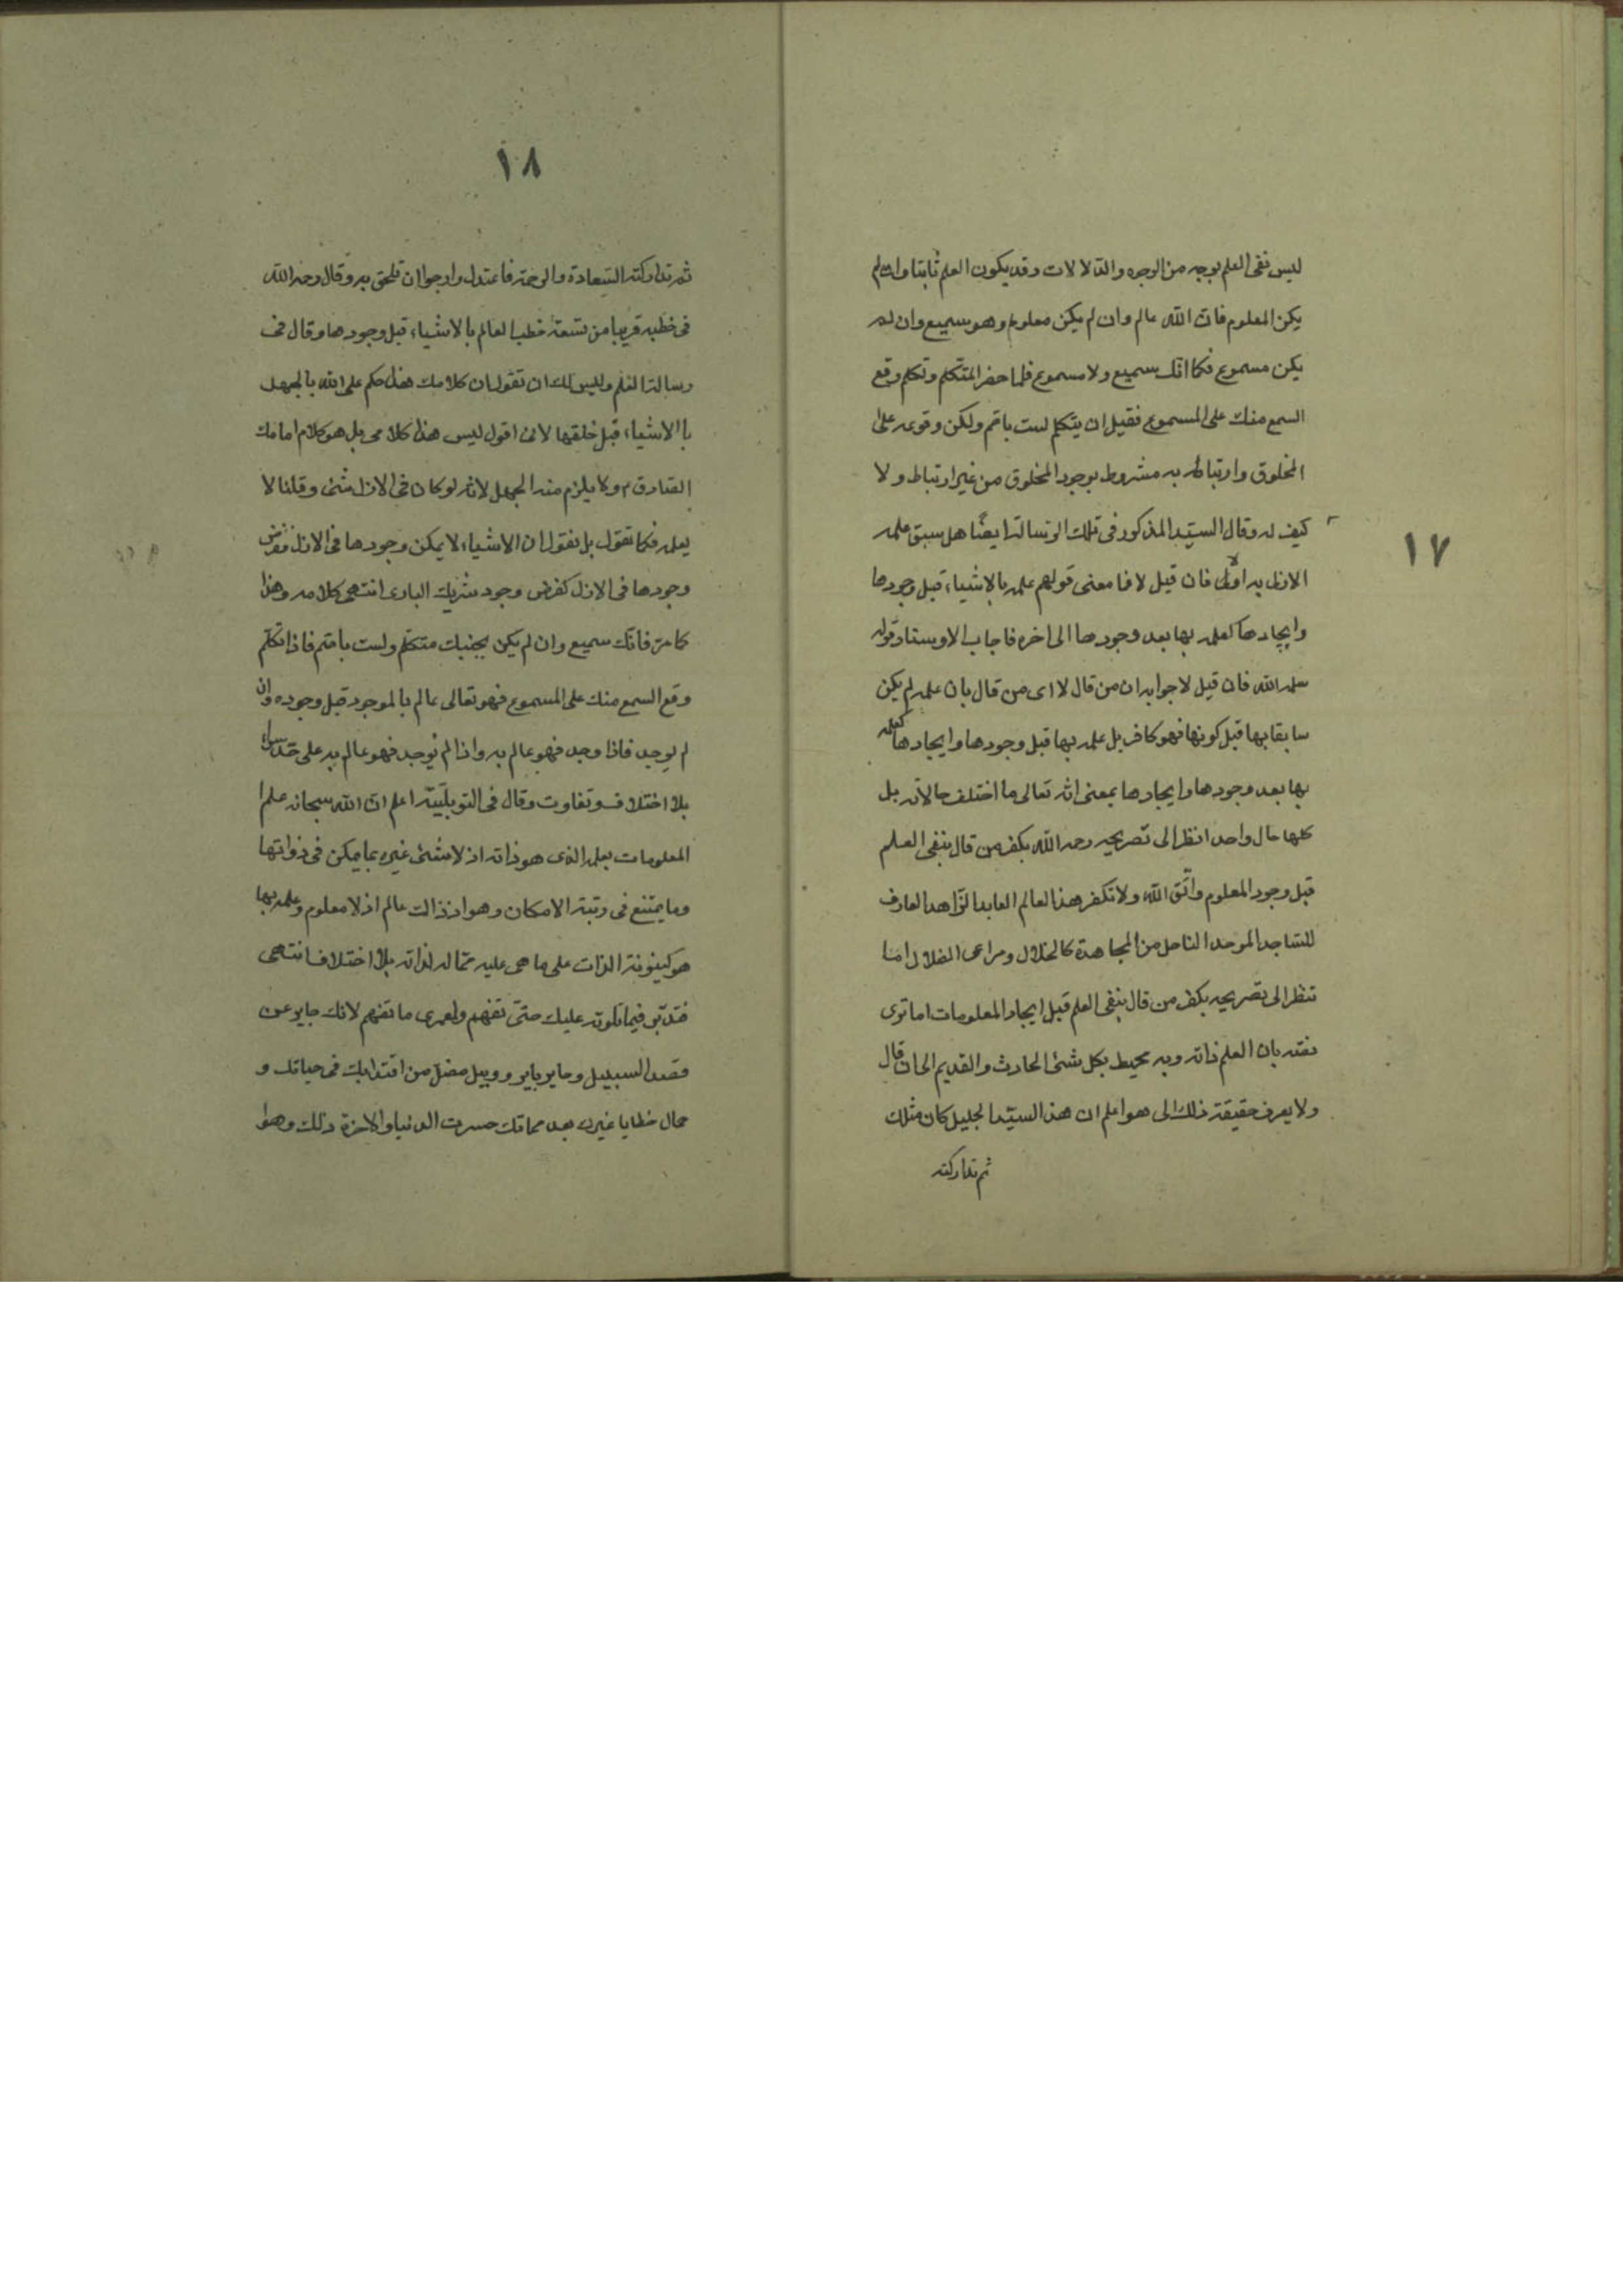 ١٧
ليس نفى العلم بوجه من الوجوه والدلالات وقد يكون العلم ثابتا وان لم
يكن المعلوم فان الله عالم وان لم يكن معلوم وهو سميع وان لم
يكن مسموع فكما انك سميع ولا مسموع فلما حضر المتكلم وتكلم وقع
السمع منك على المسموع فقبل ان يتكلم لست باصم ولكن وقوعه على
المخلوق وارتباطه به مشروط بوجود المخلوق من غير ارتباط ولا
كيف له وقال السيد المذكور فى تلك الرسالة ايضًا هل سبق علمه
الازل به اولا فان قيل لا فما معنى قولهم علمه بالاشياء قبل وجودها
وايجادها كعلمه بها بعد وجودها الى اخره فاجاب الاوستاد قوله
سلمه الله فان قيل لا جوابه ان من قال لا اى من قال بان علمه لم يكن
سابقا بها قبل كونها فهو كافر بل علمه بها قبل وجودها وايجادها كعلمه
بها بعد وجودها وايجادها بمعنى انه تعالى ما اختلف حالاته بل
كلها حال واحد انظر الى تصريحه رحمه الله بكفر من قال بنفى العلم
قبل وجود المعلوم واتّق الله ولا تكفر هذا العالم العابد الزاهد العارف
الساجد الموحد الناحل من المجاهدة كالخلال ومراعى الضلال اما
تنظر الى تصريحه بكفر من قال بنفى العلم قبل ايجاد المعلومات اما ترى
نصّه بان العلم ذاته وبه محيط بكل شئ الحادث والقديم الى ان قال
ولا يعرف حقيقة ذلك الى هو اعلم ان هذا السيّد الجليل كان مثلك
ثم تداركته
١٨
ثم تداركته السّعادة والرحمة فاعتدل وارجوا ان تلحق به وقال رحمه الله
فى خطبه قريبا من تسعة خطب العالم بالاشياء قبل وجودها وقال فى
رسالة العلم وليس لك ان تقول ان كلامك هذا حكم على الله بالجهل
باالاشياء قبل خلقها لانى اقول ليس هذا كلامى بل هو كلام امامك
الصادق ع ولا يلزم منه الجهل لانه لو كان فى الازل شئ وقلنا لا
يعلمه فكما تقول بل نقول ان الاشياء لا يمكن وجودها فى الازل ففرض
وجودها فى الازل كفرض وجود شريك البارى انتهى كلامه وهذا
كما مر فانك سميع وان لم يكن بجنبك متكلم ولست باصم فاذا تكلم
وقع السمع منك على المسموع فهو تعالى عالم بالموجود قبل وجوده وان
لم يوجد فاذا وجد فهو عالم به واذا لم يوجد فهو عالم به على حدّ سواء
بلا اختلاف وتفاوت وقال فى التوبلّيّة اعلم ان الله سبحانه علم
المعلومات بعلمه الذى هو ذاته اذ لا شئ غيره بما يمكن فى ذواتها
وما يمتنع فى رتبة الامكان وهو اذ ذاك عالم اذ لا معلوم وعلمه بها
هو كينونة الذات على ما هى عليه مما له لذاته بلا اختلاف انتهى
فتدبّر فيما تلوته عليك حتّى تفهم ولعمرى ما تفهم لانك جاير عن
قصد السبيل وحاير باير وروبيل مضلّ من اقتدا بك فى حياتك و
حمال خطايا غيرك بعد مماتك خسرت الدنيا والاخرة ذلك وهو